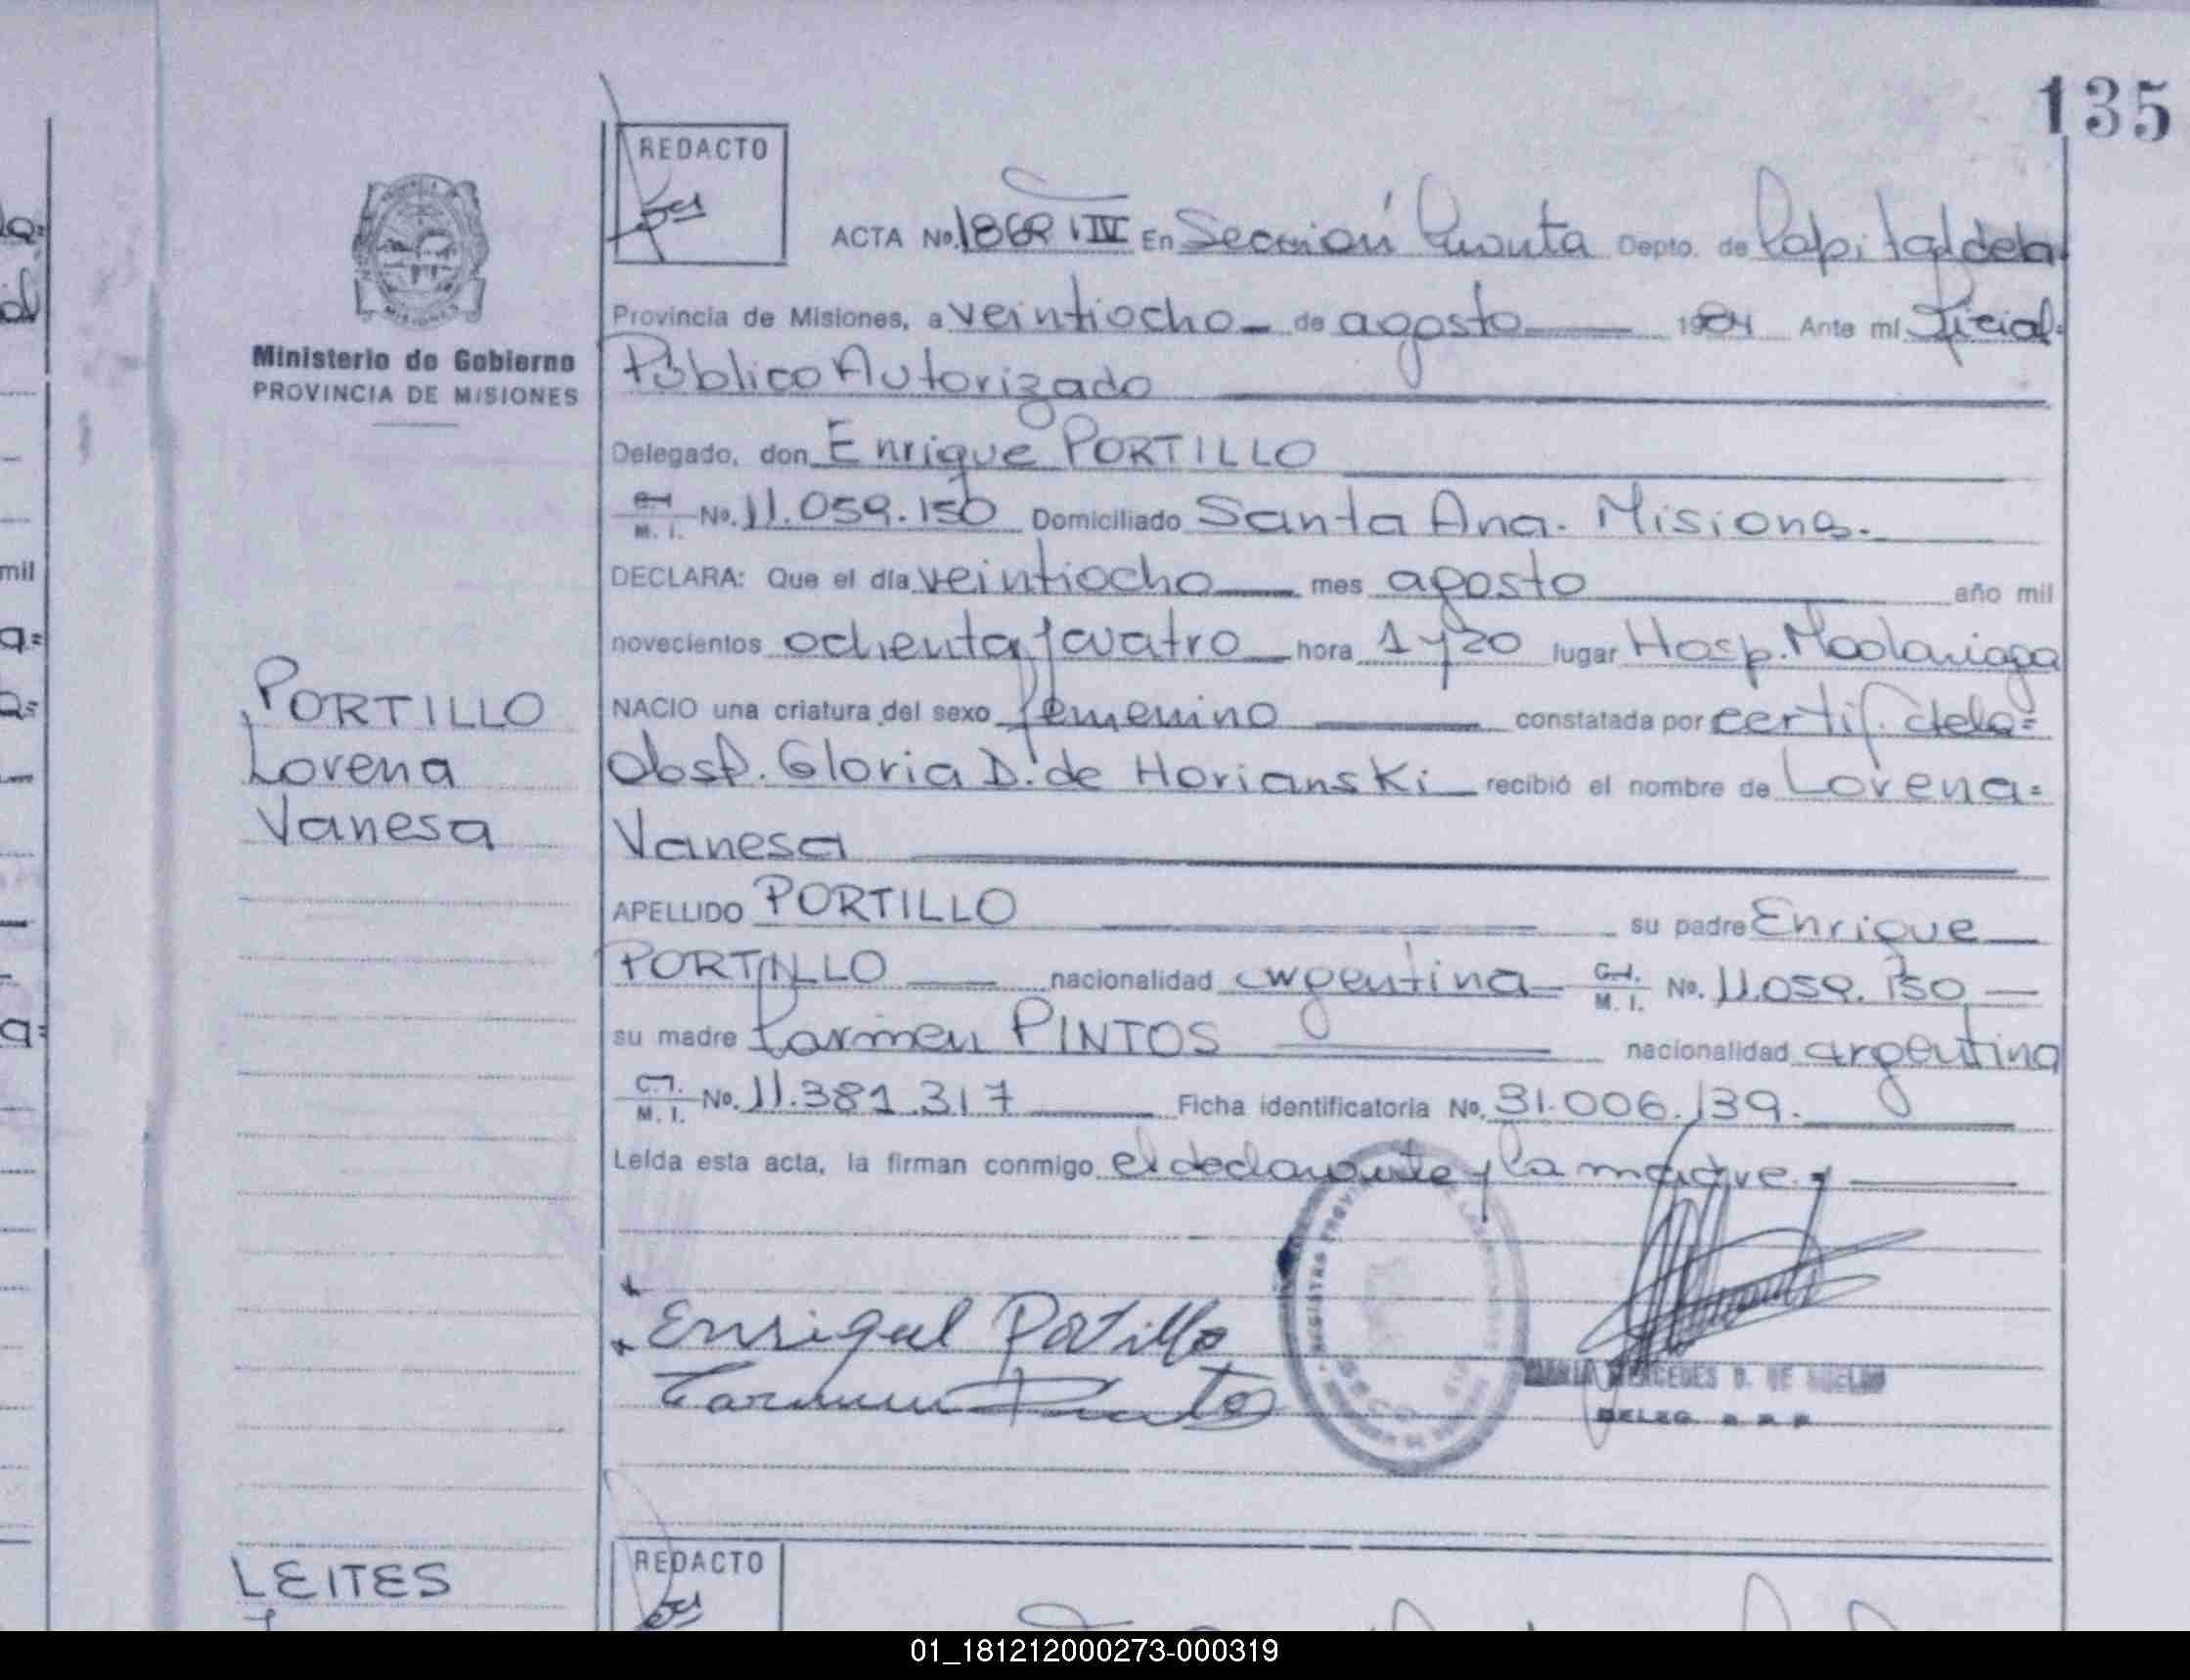 135
REDACTO
ACTA No. 1862 IIV En Sección Cuarta Depto. de Capital de la
Provincia de Misiones, a veintiocho de agosto 1984 Ante mi Oficial
Ministerio de Gobierno
PROVINCIA DE MISIONES
Público Autorizado
Delegado, don Enrique PORTILLO
C.I. M. I. No. 11.059.150 Domiciliado Santa Ana. Misiones.
DECLARA: Que el día veintiocho mes agosto año mil
novecientos ochenta y cuatro hora 1 y 20 lugar Hosp. Madariaga
NACIO una criatura del sexo femenino constatada por certif. de la=
obst. Gloria D. de Horianski recibió el nombre de Lorena=
Vanesa
PORTILLO
Lorena
Vanesa
APELLIDO PORTILLO su padre Enrique
PORTILLO nacionalidad argentina C.I. M. I. No. 11.059.150
su madre Carmen PINTOS nacionalidad argentina
C.I. M. I. No. 11.381.317 Ficha identificatoria No. 31.006.139.
Leída esta acta, la firman conmigo el declarante y la madre.
Enrique Portillo
Carmen Pintos
MERCEDES D. DE
DELEG. R. P. P.
LEITES
REDACTO
01_181212000273-000319